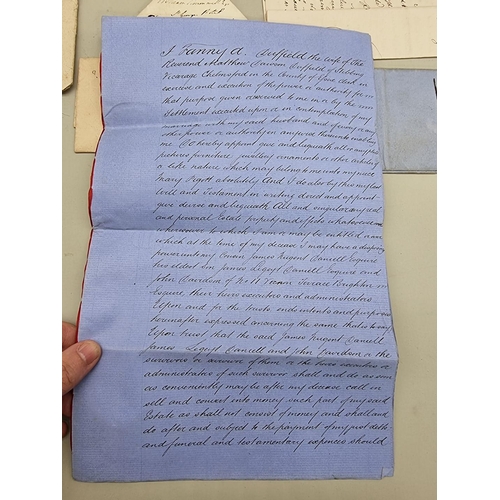 I Fanny A. Duffield the wife of The
Reverend Matthew Dawson Duffield of Stebbing
Vicarage Chelmsford in the County of Essex And in
exercise and execution of the power or authority for
that purpose given or reserved to me in or by the
Settlement executed upon or in contemplation of my
marriage with my said husband and of every or any
other power or authority in anywise thereunto enabling
me Do hereby appoint give and bequeath all or any plate
pictures furniture jewellery ornaments or other articles of
a like nature which may belong to me unto my niece
Mary absolutely And I do also by this my last
Will and Testament in writing direct and appoint
give devise and bequeath All and singular my real
and personal Estate property and effects whatsoever and
wheresoever to which I am or may be entitled or over
which at the time of my decease I may have a disposing
power unto my Cousin James Nugent Daniell Esquire
his eldest Son James Legeyt Daniell Esquire and
John Davidson of No 11 Terrace Brighton in
Esquire their heirs executors and administrators
Upon and for the trusts and purposes
hereinafter expressed concerning the same that is to say
Upon trust that the said James Nugent Daniell
James Legeyt Daniell and John Davidson or the
survivors or survivor of them or the heirs executors or
administrators of such survivor shall and do as soon
as conveniently may be after my decease call in
sell and convert into money such part of my said
Estate as shall not consist of money and shall and
do after and subject to the payment of my just debts
and funeral and testamentary expences should